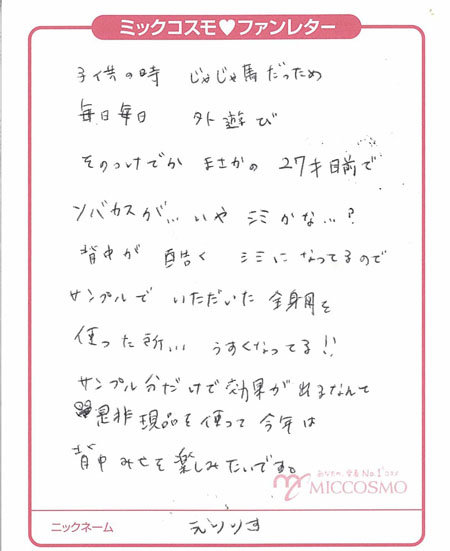 ミックコスモ♥ファンレター
子供の時 じゃじゃ馬だっため
毎日毎日 外遊び
そのつけでか まさかの 27才目前で
ソバカスが… いや シミかな…?
背中が 酷く シミになってるので
サンプルで いただいた 全身用を
使った所… うすくなってる!!
サンプル分だけで効果が出るなんて
是非現品を使って今年は
背中みせを楽しみたいです。
あなたの、愛着No.1コスメ
MICCOSMO
ニックネーム えりりす